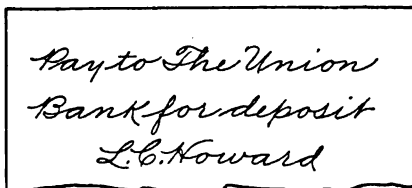 Pay to The Union
Bank for deposit
L.C. Howard